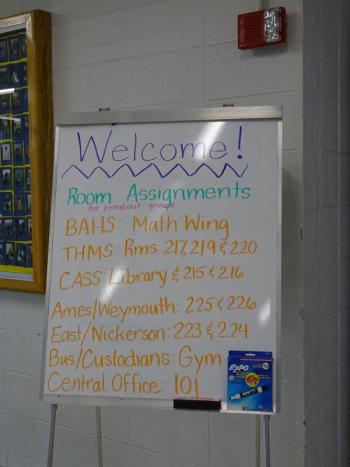 Welcome!
Room Assignments
for breakout groups
BAHS: Math Wing
THMS: Rms 217, 219 & 220
CASS: Library & 215 & 216
Ames/Weymouth: 225 & 226
East/Nickerson: 223 & 224
Bus/Custodians: Gym
Central Office: 101
EXPO